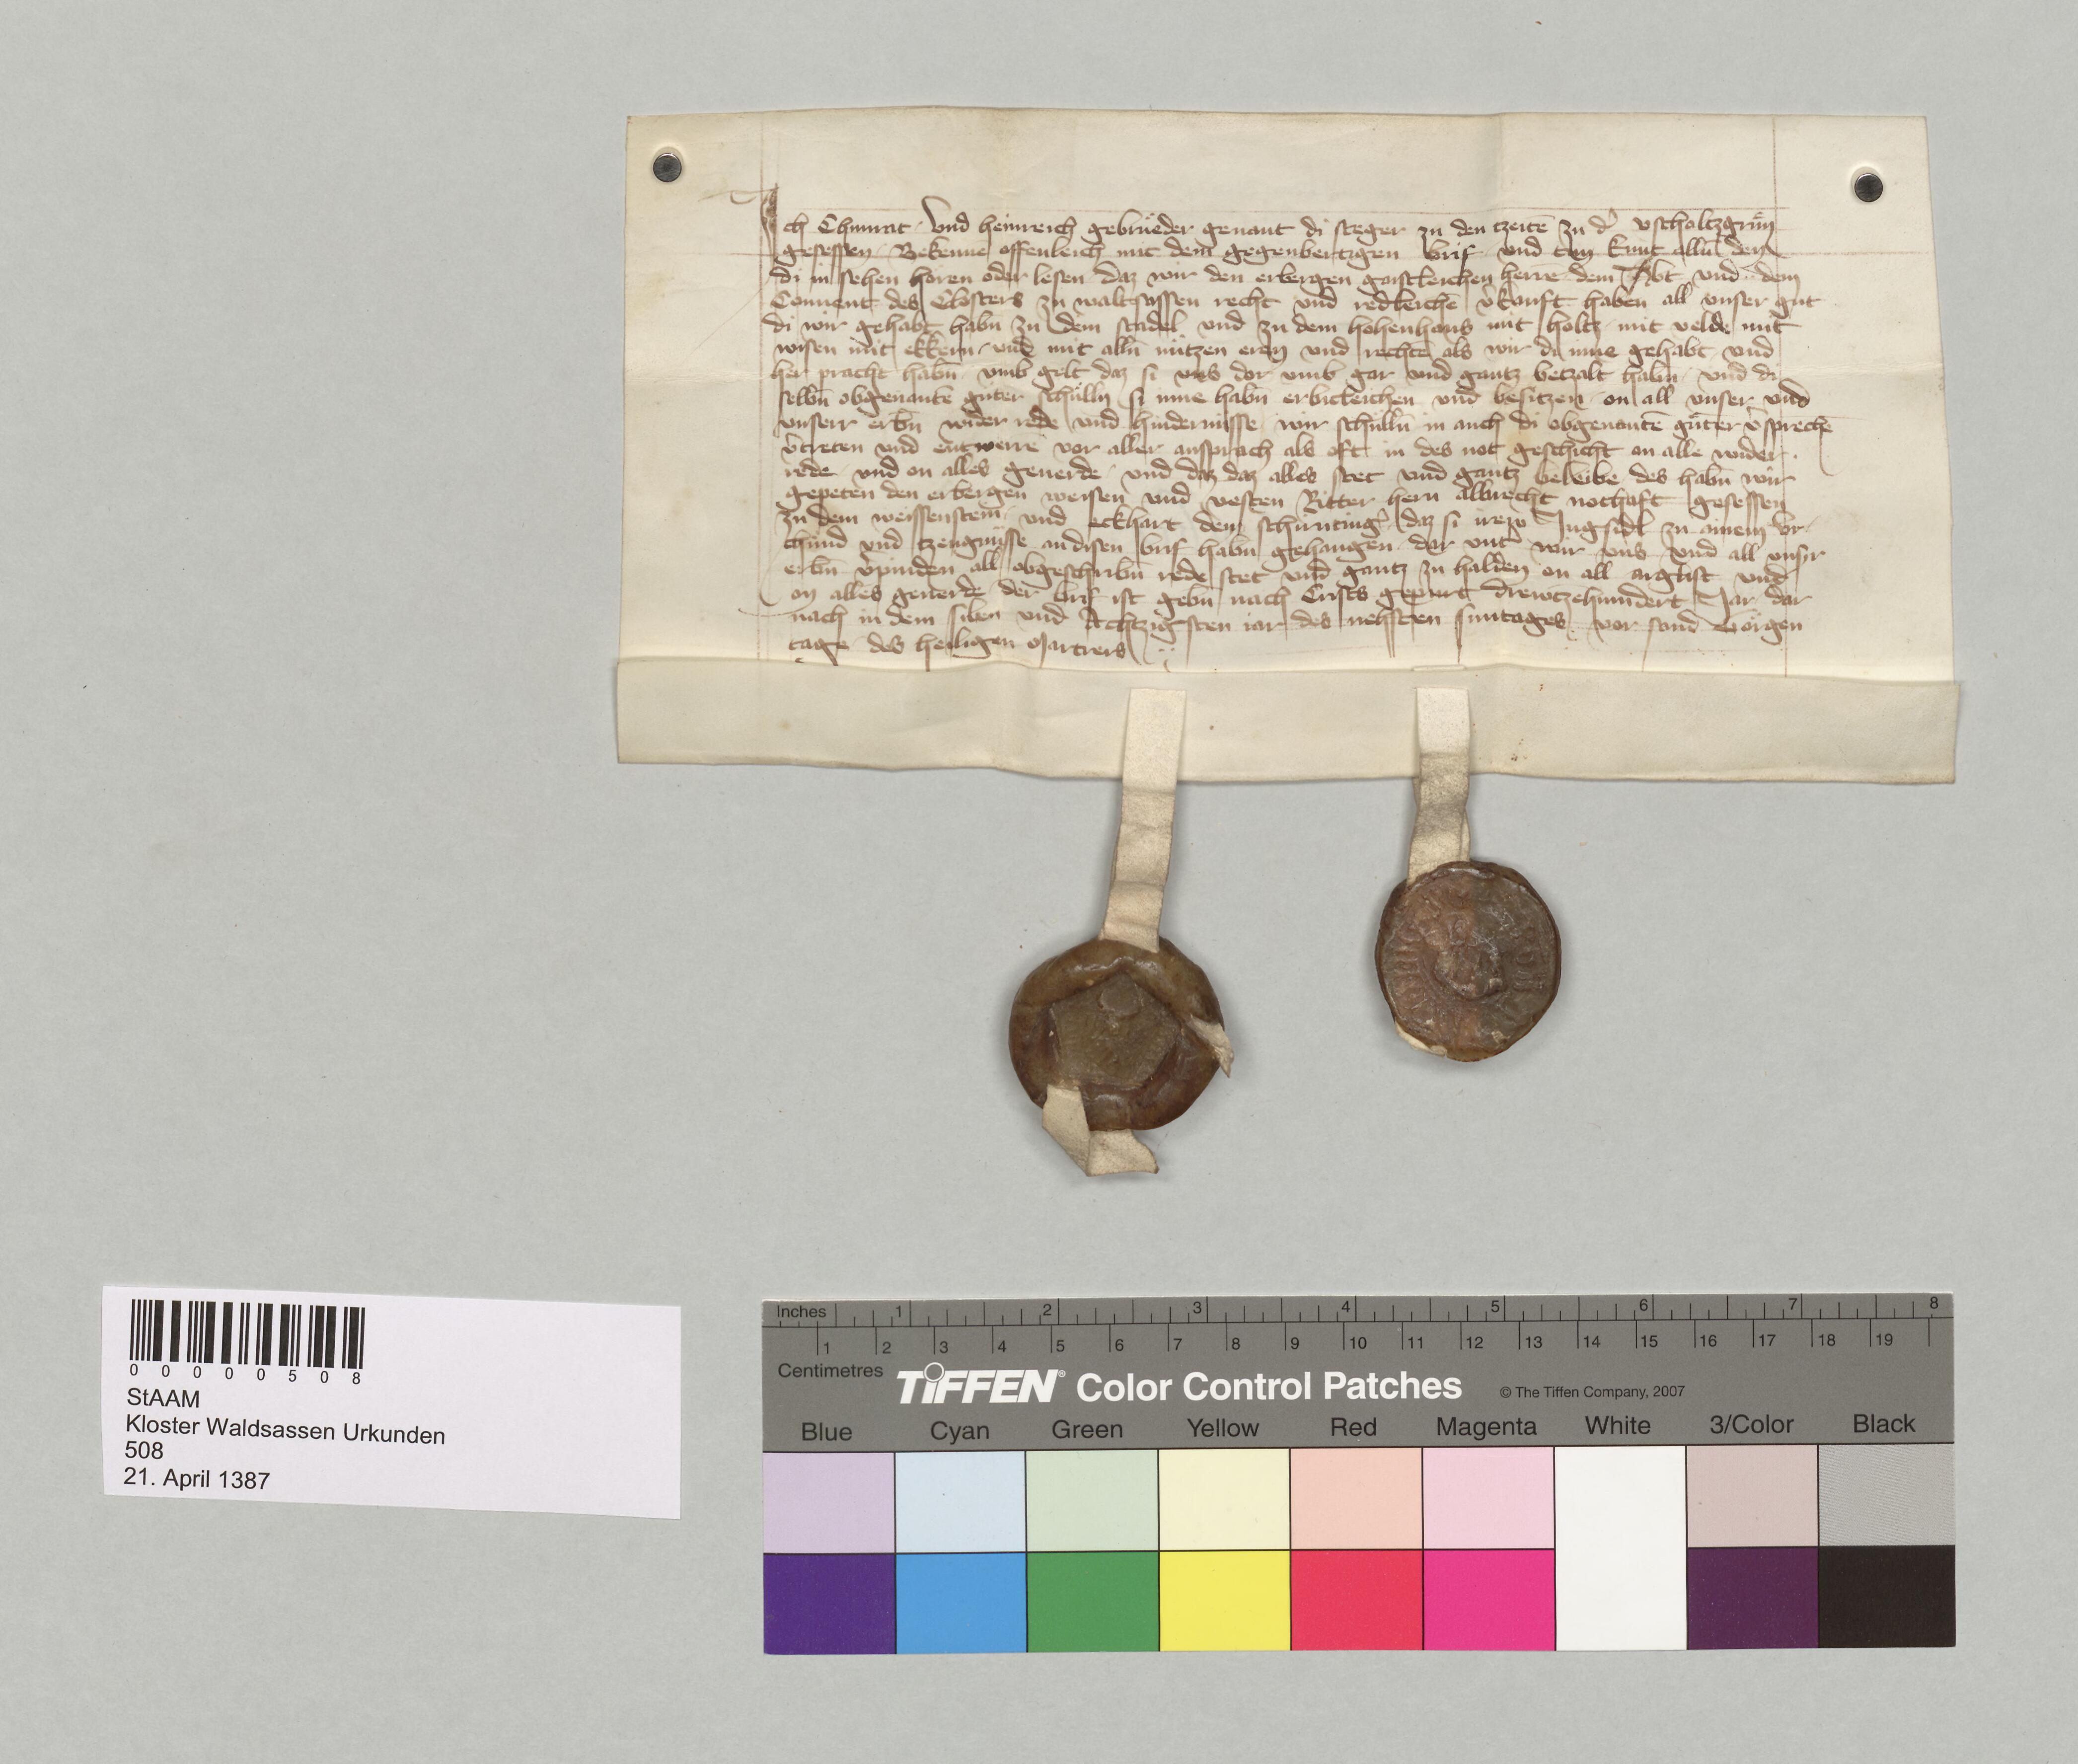 Ich Chunrat Vnd heinreich gebrueder genant di steger zu den tzeitē zu d' vscholtzgruͤn
gesessen Bekenne offenleich mit dem gegenbertigen brif vnd tun kunt allen̄ den
di in sehen horen oder lesen daz wir den erbergen gaistleichen herrē dem Abt vnd dem
Conuent des Closters zu waltsassen recht vnd redleichē v'kauft haben all vnser gut
di wir gehabt habn̄ zu dem stadel vnd zu dem hohenhaus mit holtz mit velde mit
wisen mit ekkern vnd mit alln̄ nutzen eren vnd rechtē als wir di inne gehabt vnd
her pracht habn̄ vmb gelt daz si vns dor vmb gar vnd gantz betzalt habn̄ vnd di
selbn̄ obgenantē guter schulln̄ si inne habn̄ erbicleichen vnd besitzen on all vnser vnd
vnserr erbn̄ wider rede vnd hindernisse wir schulln̄ in auch di obgenantē guͤter v'sprechē
v'treten vnd entwerrē vor aller ansprach als oft in des not geschicht on alle wider
rede vnd on alles geuerde vnd daz daz alles stet vnd gantz beleibe des habn̄ wir
gepeten den erbergen weisen vnd vesten Ritter hern albrecht nothaft gesessen
zu dem weissenstein vnd eckhart dem schirntinger daz si irew Insigel zu ainem vr
chund vnd tzeugnüsse an disen brif habn̄ gehangen dar vnt' wir vns vnd all vnsir
erbn̄ v'pinden all obgeschribn̄ rede stet vnd gantz zu halden on all arglist vnd
on alles geuerde der brif ist gebn̄ nach Crists gepurt drewtzehundert Jar dar
nach in dem siben vnd Achtzigsten iar des nehsten suntages vor sand Goͤrgen
tage des heiligen Martrers
0 0 0 0 0 5 0 8
StAAM
Kloster Waldsassen Urkunden
508
21. April 1387
Inches 1 2 3 4 5 6 7 8
1 2 3 4 5 6 7 8 9 10 11 12 13 14 15 16 17 18 19
Centimetres
TIFFEN® Color Control Patches © The Tiffen Company, 2007
Blue Cyan Green Yellow Red Magenta White 3/Color Black